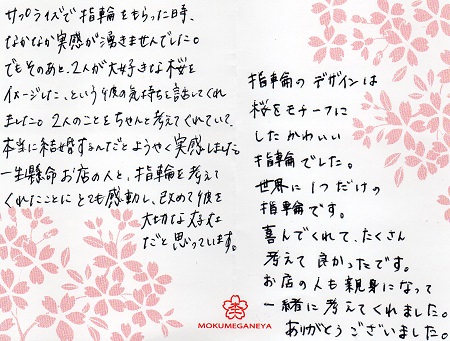 サプライズで指輪をもらった時、
なかなか実感が湧きませんでした。
でもそのあと、2人が大好きな桜を
イメージした、という彼の気持ちを話してくれ
ました。2人のことをちゃんと考えてくれていて、
本当に結婚するんだとようやく実感しました。
一生懸命お店の人と、指輪を考えて
くれたことにとても感動し、改めて彼を
大切な存在
だと思っています。
指輪のデザインは
桜をモチーフに
したかわいい
指輪でした。
世界に1つだけの
指輪です。
喜んでくれて、たくさん
考えて良かったです。
お店の人も親身になって
一緒に考えてくれました。
ありがとうございました。
MOKUMEGANEYA